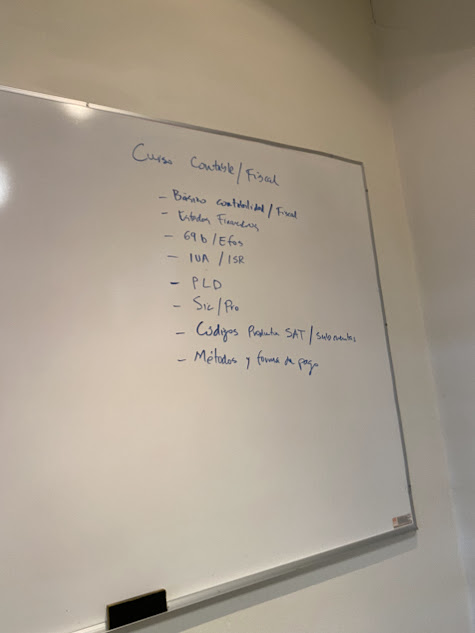 Curso Contable/Fiscal
- Básico contabilidad/Fiscal
- Estados Financieros
- 69b/Efos
- IVA/ISR
- PLD
- Sic/Pro
- Códigos Producto SAT/
- Métodos y forma de pago